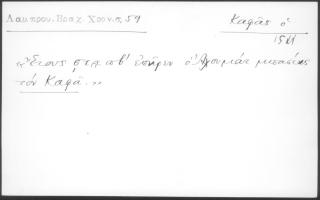 Λαμπρου. Βραχ. Χρον. σ. 59
Καφᾶς ὁ
1511
"Ἔτους ͵ςπβ' ἐπῆρεν ὁ Ἀχουμὰτ μπασίας
τὸν Καφᾶ."